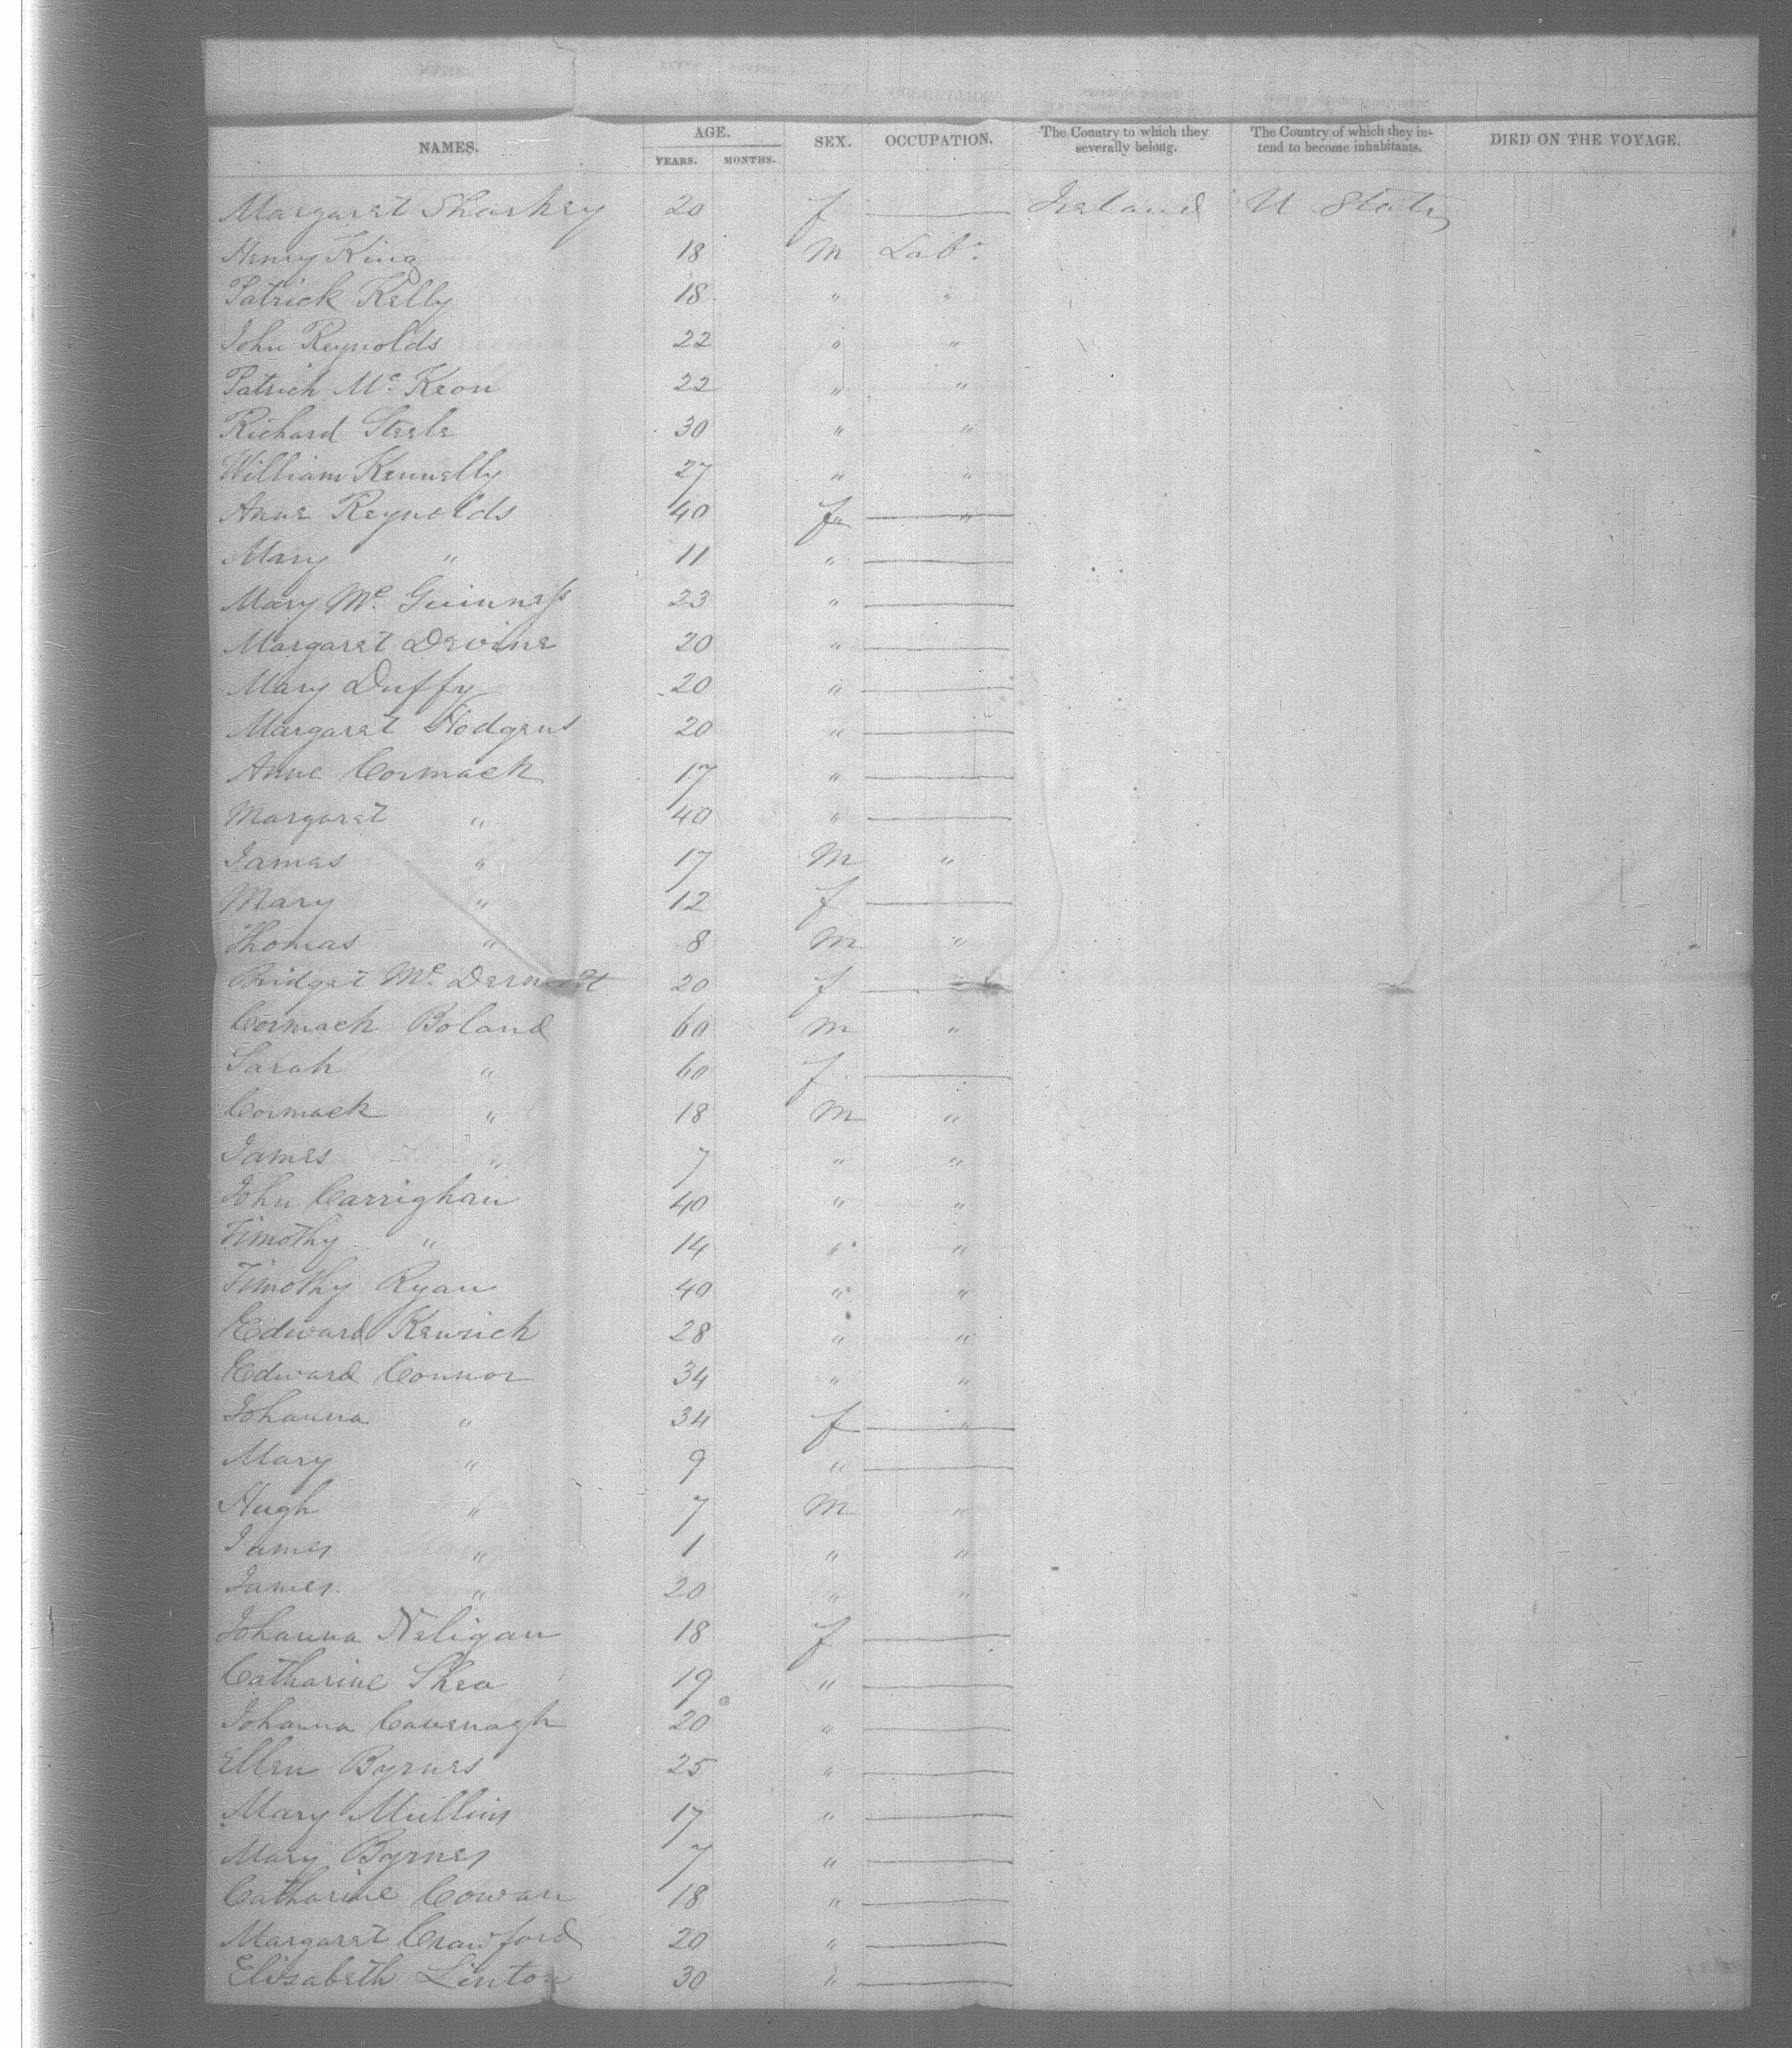 NAMES. AGE. SEX. OCCUPATION. The Country to which they severally belong. The Country of which they intend to become inhabitants. DIED ON THE VOYAGE.
YEARS. MONTHS.
Margaret Sharkey 20 f —— Ireland U States
Henry King 18 M Labr.
Patrick Kelly 18 " "
John Reynolds 22 " "
Patrick Mc. Keon 22 " "
Richard Steele 30 " "
William Kennelly 27 " "
Anne Reynolds 40 f ——
Mary " 11 " ——
Mary Mc. Guinness 23 " ——
Margaret Devine 20 " ——
Mary Duffy 20 " ——
Margaret Hodgens 20 " ——
Anne Cormack 17 " ——
Margaret " 40 " ——
James " 17 M "
Mary " 12 f ——
Thomas " 8 M "
Bridget Mc. Dermott 20 f ——
Cormack Boland 60 M "
Sarah " 60 f ——
Cormack " 18 M "
James " 7 " "
John Carrighan 40 " "
Timothy " 14 " "
Timothy Ryan 40 " "
Edward 28 " "
Edward Connor 34 " "
Johanna " 34 f ——
Mary " 9 " ——
Hugh " 7 M "
James " 1 " "
James " 20 " "
Johanna Neligan 18 f ——
Catharine Shea 19 " ——
Johanna Cavenagh 20 " ——
Ellen Byrnes 25 " ——
Mary Mullins 17 " ——
Mary Byrnes 7 " ——
Catharine Cowan 18 " ——
Margaret Crawford 20 " ——
Elisabeth Linton 30 " ——